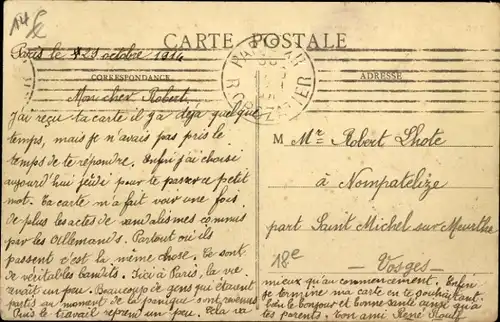 14/2
CARTE POSTALE
Paris le 29 octobre 1914
CORRESPONDANCE
ADRESSE
Mon cher Robert.
J'ai reçu ta carte il y a déjà quelque
temps, mais je n'avais pas pris le
temps de te répondre. Enfin j'ai choisi
aujourd'hui jeudi pour te passer ce petit
mot. Ta carte m'a fait voir une fois
de plus les actes de vandalismes commis
par les Allemands. Partout où ils
passent c'est la même chose. Ce sont
de véritables bandits. Ici à Paris, la vie
avait un peu. Beaucoup de gens qui étaient
partis au moment de la panique sont revenus
Puis le travail reprend un peu. Cela va
M Mr Robert Lhote
à Nompatelize
part Saint Michel sur Meurthe
18e
— Vosges —
mieux qu'au commencement. Enfin
je termine ma carte en te souhaitant
bonne Santé ainsi qu'à
tes parents. Ton ami René